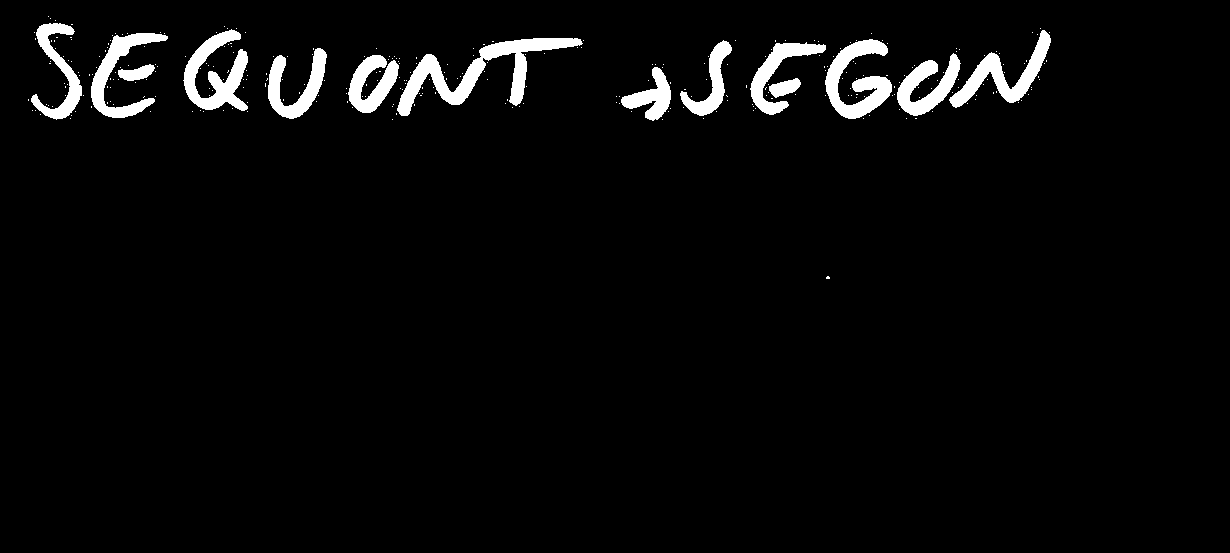 SEQUONT → SEGON